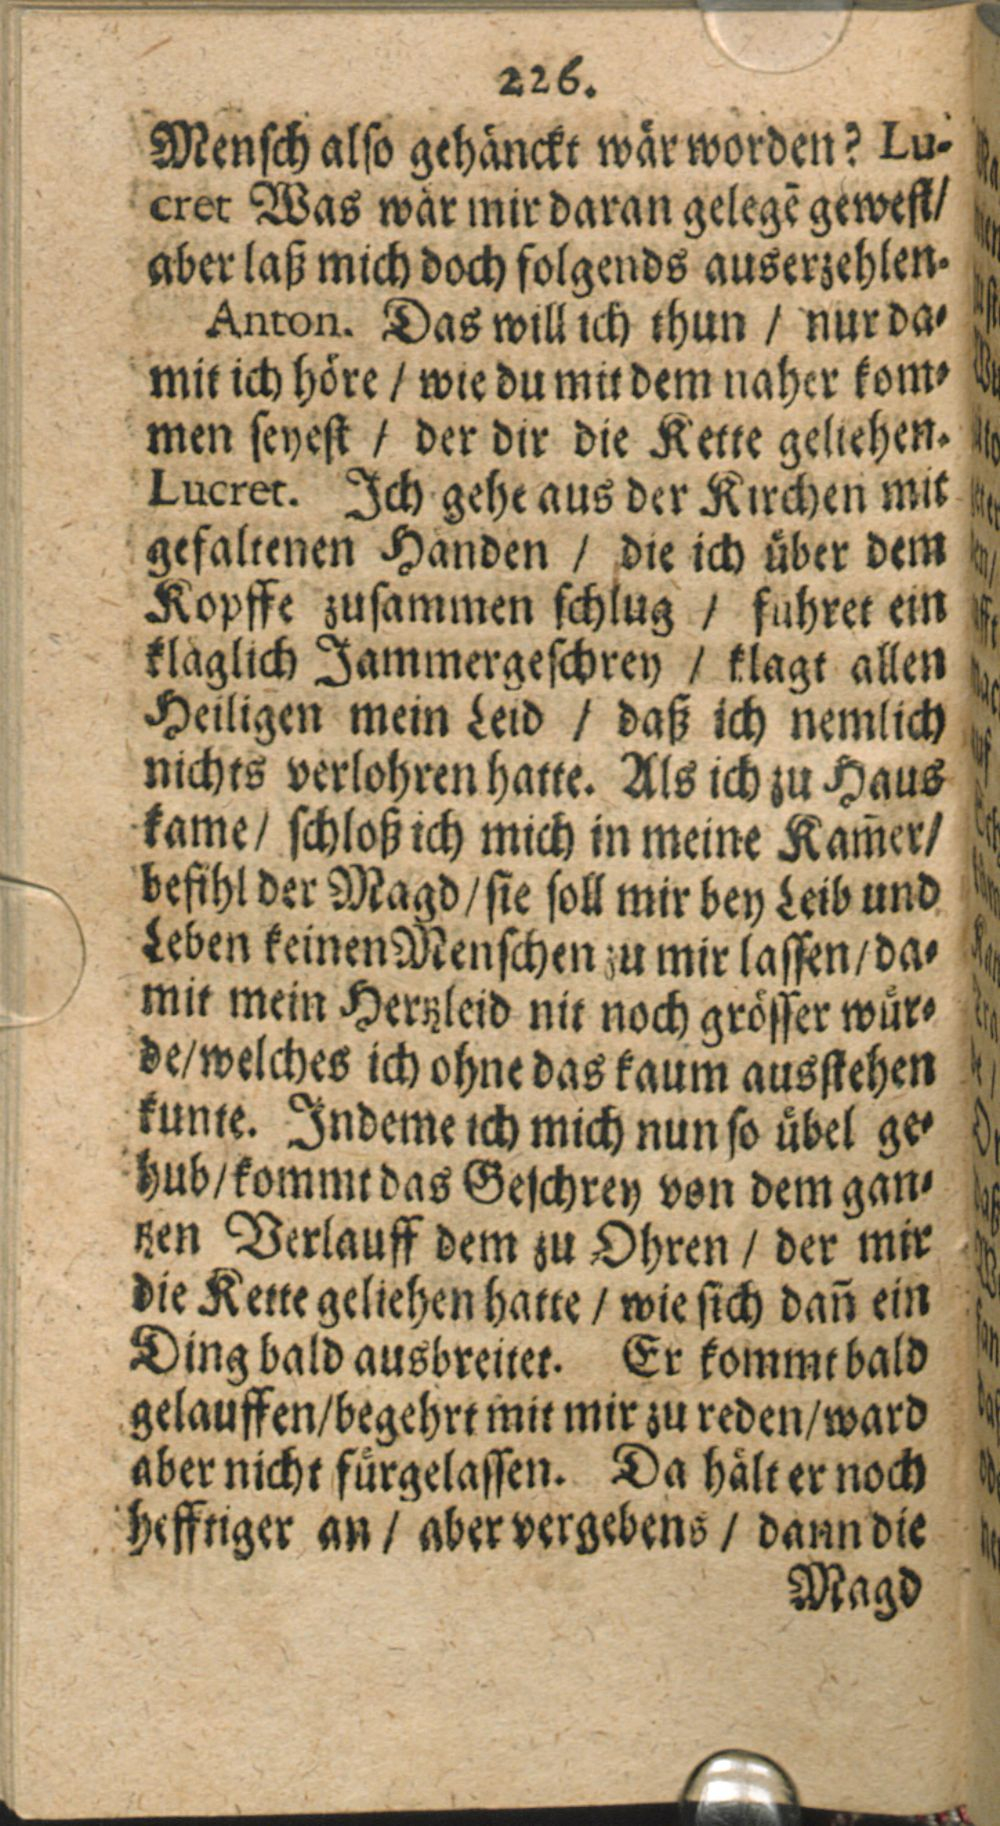 226.
Mensch also gehänckt wär worden? Lu-
cret Was wär mir daran gelegē gewest/
aber laß mich doch folgends auserzehlen.
Anton. Das will ich thun / nur da-
mit ich höre / wie du mit dem naher kom-
men seyest / der dir die Kette geliehen.
Lucret. Ich gehe aus der Kirchen mit
gefaltenen Händen / die ich über dem
Kopffe zusammen schlug / führet ein
kläglich Jammergeschrey / klagt allen
Heiligen mein Leid / daß ich nemlich
nichts verlohren hatte. Als ich zu Haus
kame / schloß ich mich in meine Kam̃er/
befihl der Magd / sie soll mir bey Leib und
Leben keinen Menschen zu mir lassen / da-
mit mein Hertzleid nit noch grösser wür-
de / welches ich ohne das kaum ausstehen
kunte. Indeme ich mich nun so übel ge-
hub / kommt das Geschrey von dem gan-
tzen Verlauff dem zu Ohren / der mir
die Kette geliehen hatte / wie sich dañ ein
Ding bald ausbreitet. Er kommt bald
gelauffen/begehrt mit mir zu reden/ward
aber nicht fürgelassen. Da hält er noch
hefftiger an / aber vergebens / dann die
Magd